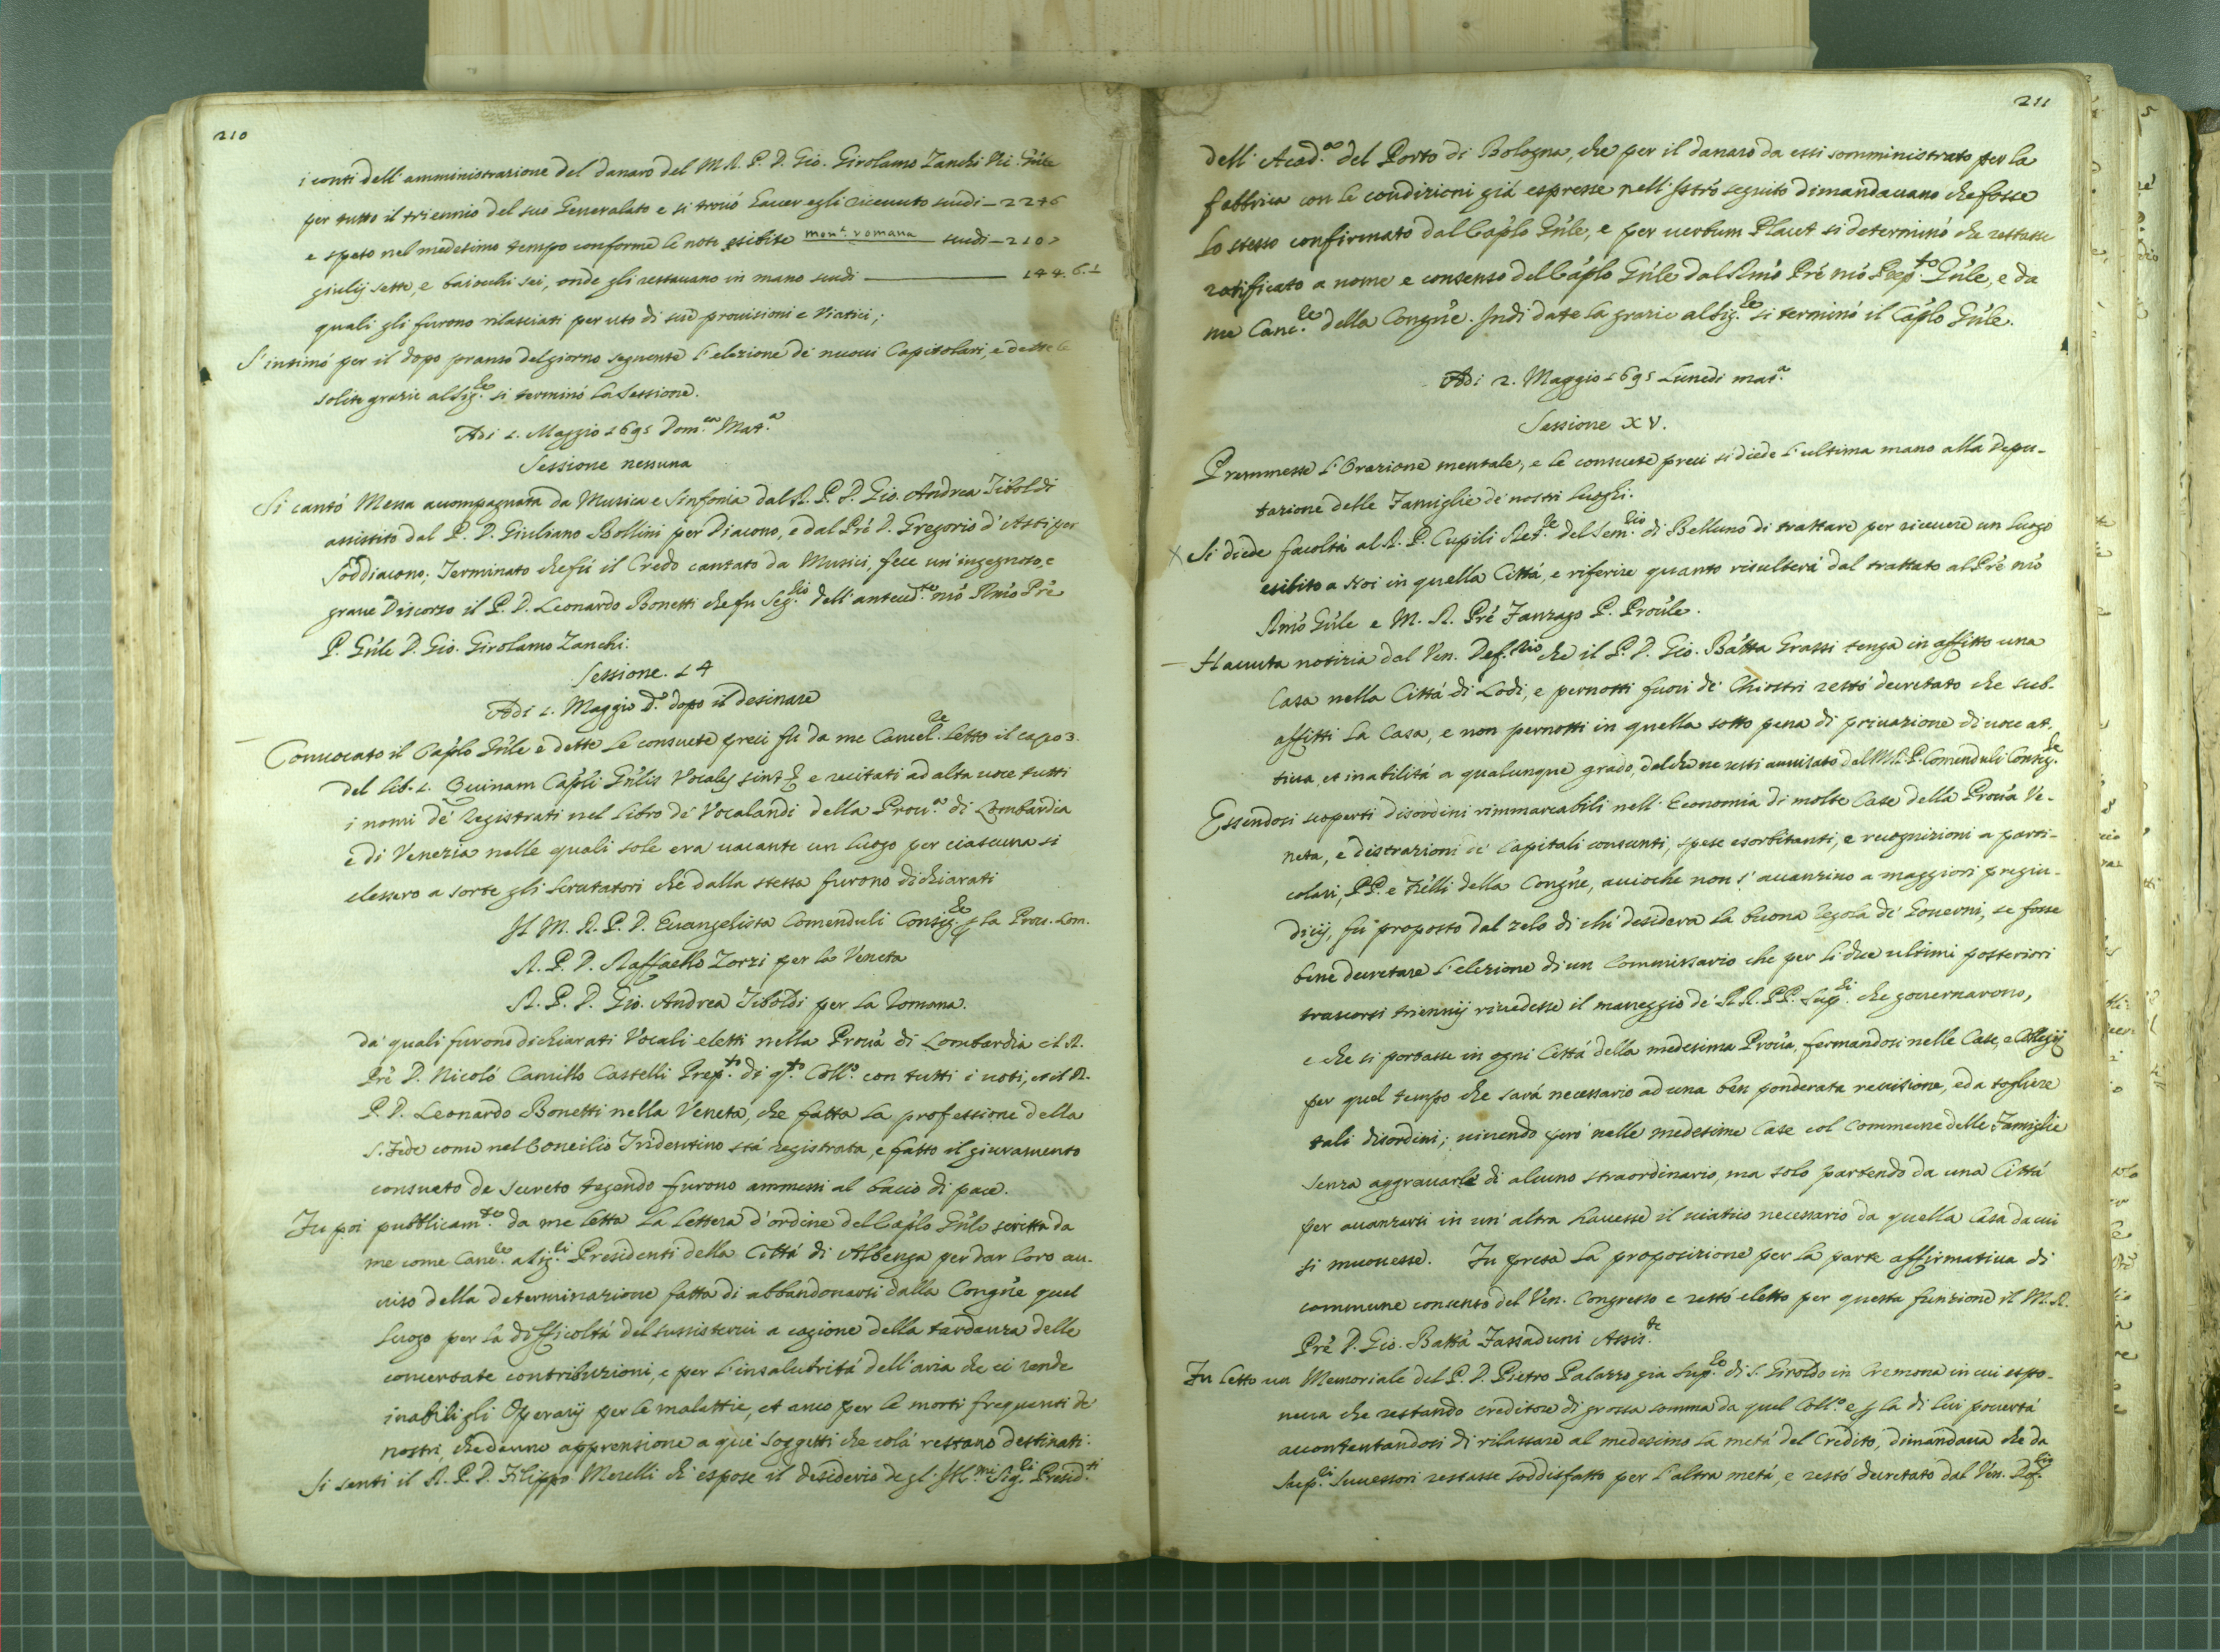 210
i conti dell'amministrazione del danaro del M. R. P. D. Gio. Girolamo Zanchi
per tutto il triennio del suo Generalato e si trovó haver egli ricevuto scudi – 2276
e speso nel medesimo tempo conforme le note esibite mon.ta romana scudi – 210
giulij sette, e baiocchi sei, onde gli restavano in mano scudi 144. 6. 1
quali gli furono rilasciati per uso di sue provisioni e Viatici;
S'intimó per il dopo pranso del giorno seguente l'elezione de' nuovi Capitolari, e dette le
solite grazie al Sig.re si terminó la Sessione.
Adi 1. Maggio 1695 Dom.ca Mat.a
Sessione nessuna
Si cantó Messa accompagnata da Musica e Sinfonia dal R. P. D. Gio. Andrea Tiboldi
assistito dal P. D. Giuliano Bollini per Diacono, e dal Pre D. Gregorio d'Asti per
Soddiacono; Terminato che fú il Credo cantato da Musici, fece un'ingegnoso, e
grave Discorso il P. D. Leonardo Bonetti che fu Seg.rio dell'anteced.te nro Rmo Pre
P. Gnle D. Gio. Girolamo Zanchi.
Sessione. 14
Adi 1. Maggio d.o dopo il desinare
Convocato il Caplo Gnle e dette le consuete preci fú da me Cancel.re letto il capo 3.
del lib. 1. Quinam Capli Gnlis Vocales sint e recitati ad alta voce tutti
i nomi de' registrati nel libro de' Vocalandi della Prov.a di Lombardia
e di Venezia nelle quali sole era vacante un luogo per ciascuna si
elessero a sorte gli Scrutatori che dalla stessa furono dichiarati
Il M. R. P. D. Evangelista Comenduli Consig.re p la Prov. Lom.
R. P. D. Raffaello Zorzi per la Veneta
R. P. D. Gio. Andrea Tiboldi per la Romana.
da' quali furono dichiarati Vocali eletti nella Provà di Lombardia il R.
Pre D. Nicoló Camillo Castelli Prep.to di q.to Coll.o con tutti i voti, et il R.
P. D. Leonardo Bonetti nella Veneta, che fatta la professione della
S. Fede come nel Concilio Tridentino stá registrata, e fatto il giuramento
consueto de secreto tegendo furono ammessi al bacio di pace.
Fu poi pubblicam.te da me letta la lettera d'ordine del Caplo Gnle scritta da
me come Canc.re a Sig.ri Presidenti della Cittá di Albenga per dar loro av-
viso della determinazione fatta di abbandonarsi dalla Congne quel
luogo per la difficoltá del sussistervi a cagione della tardanza delle
concertate contribuzioni, e per l'insalubritá dell'aria che ci rende
inabili gli Operarij per le malattie, et anco per le morti frequenti de'
nostri, che danno apprensione a quei soggetti che colá restano destinati.
Si sentí il R. P. D. Filippo Merelli ch'espose il desiderio degl'Ill.mi Sig.ri Presid.ti
211
dell'Acad.a del Porto di Bologna, che per il danaro da essi somministrato per la
fabbrica con le condizioni giá espresse nell'Istró seguito dimandavano che fosse
lo stesso confirmato dal Caplo Gnle, e per verbum Placet si determinó che restasse
ratificato a nome e consenso del Caplo Gnle dal Rmo Pre nro Prep.to Gnle, e da
me Canc.re della Congne. Indi date la grazie al Sig.re si terminó il Caplo Gnle.
Adi 2. Maggio 1695 Lunedi mat.a
Sessione XV.
Premmesse l'Orazione mentale, e le consuete preci si diede l'ultima mano alla Depu-
tazione delle Famiglie de' nostri luoghi.
X Si diede facoltá al R. P. Cupili Ret.re del Sem.rio di Belluno di trattare per ricevere un luogo
esibito a Noi in quella Cittá, e riferire quanto risulterá dal trattato al Pre nro
Rmo Gnle e M. R. Pre Fanzago P. Provle.
– Havuta notizia dal Ven. Def.rio che il P. D. Gio. Batta Grassi tenga in affitto una
Casa nella Cittá di Lodi, e pernotti fuori de' Chiostri restó decretato che sub-
affitti la Casa, e non pernotti in quella sotto pena di privazione di voce at-
tiva, et inabilitá a qualunque grado, del che ne resti avvisato dal M. R. P. Comenduli Consig.re
Essendosi scoperti disordini rimmarcabili nell'Economia di molte Case della Prova Ve-
neta, e distrazioni de' Capitali consunti, spese esorbitanti, e recognizioni a parti-
colari, PP. e Frelli della Congne, accioche non s'avanzino a maggiori pregiu-
dicij, fú proposto dal zelo di chi desidera la buona regola de' Governi, se fosse
bene decretare l'elezione di un Commissario che per li due ultimi posteriori
trascorsi triennij rivedesse il maneggio de' RR. PP. Sup.ri che governarono,
e che si portasse in ogni Cittá della medesima Prova, fermandosi nelle Case, e Collegij
per quel tempo che sará necessario ad una ben ponderata revisione, ed a togliere
tali disordini; vivendo peró nelle medesime Case col Commune delle Famiglie
senza aggravarle di alcuno straordinario, ma solo partendo da una Cittá
per avanzarsi in un'altra havesse il viatico necessario da quella Casa da cui
si movesse. Fu presa la proposizione per la parte affirmativa di
commune consenso del Ven. Congresso e restó eletto per questa funzione il M. R.
Pre D. Gio. Batta Fassaduni Assis.te
Fu letto un Memoriale del P. D. Pietro Palazzo gia Sup.re di S. Giroldo in Cremona in cui espo-
neva che restando creditore di grossa somma da quel Coll.o e p la di lui povertá
accontentandosi di rilassare al medesimo la metá del Credito, dimandava che da
Sup.ri Successori restasse soddisfatto per l'altra metá, e restó decretato dal Ven. Def.rio